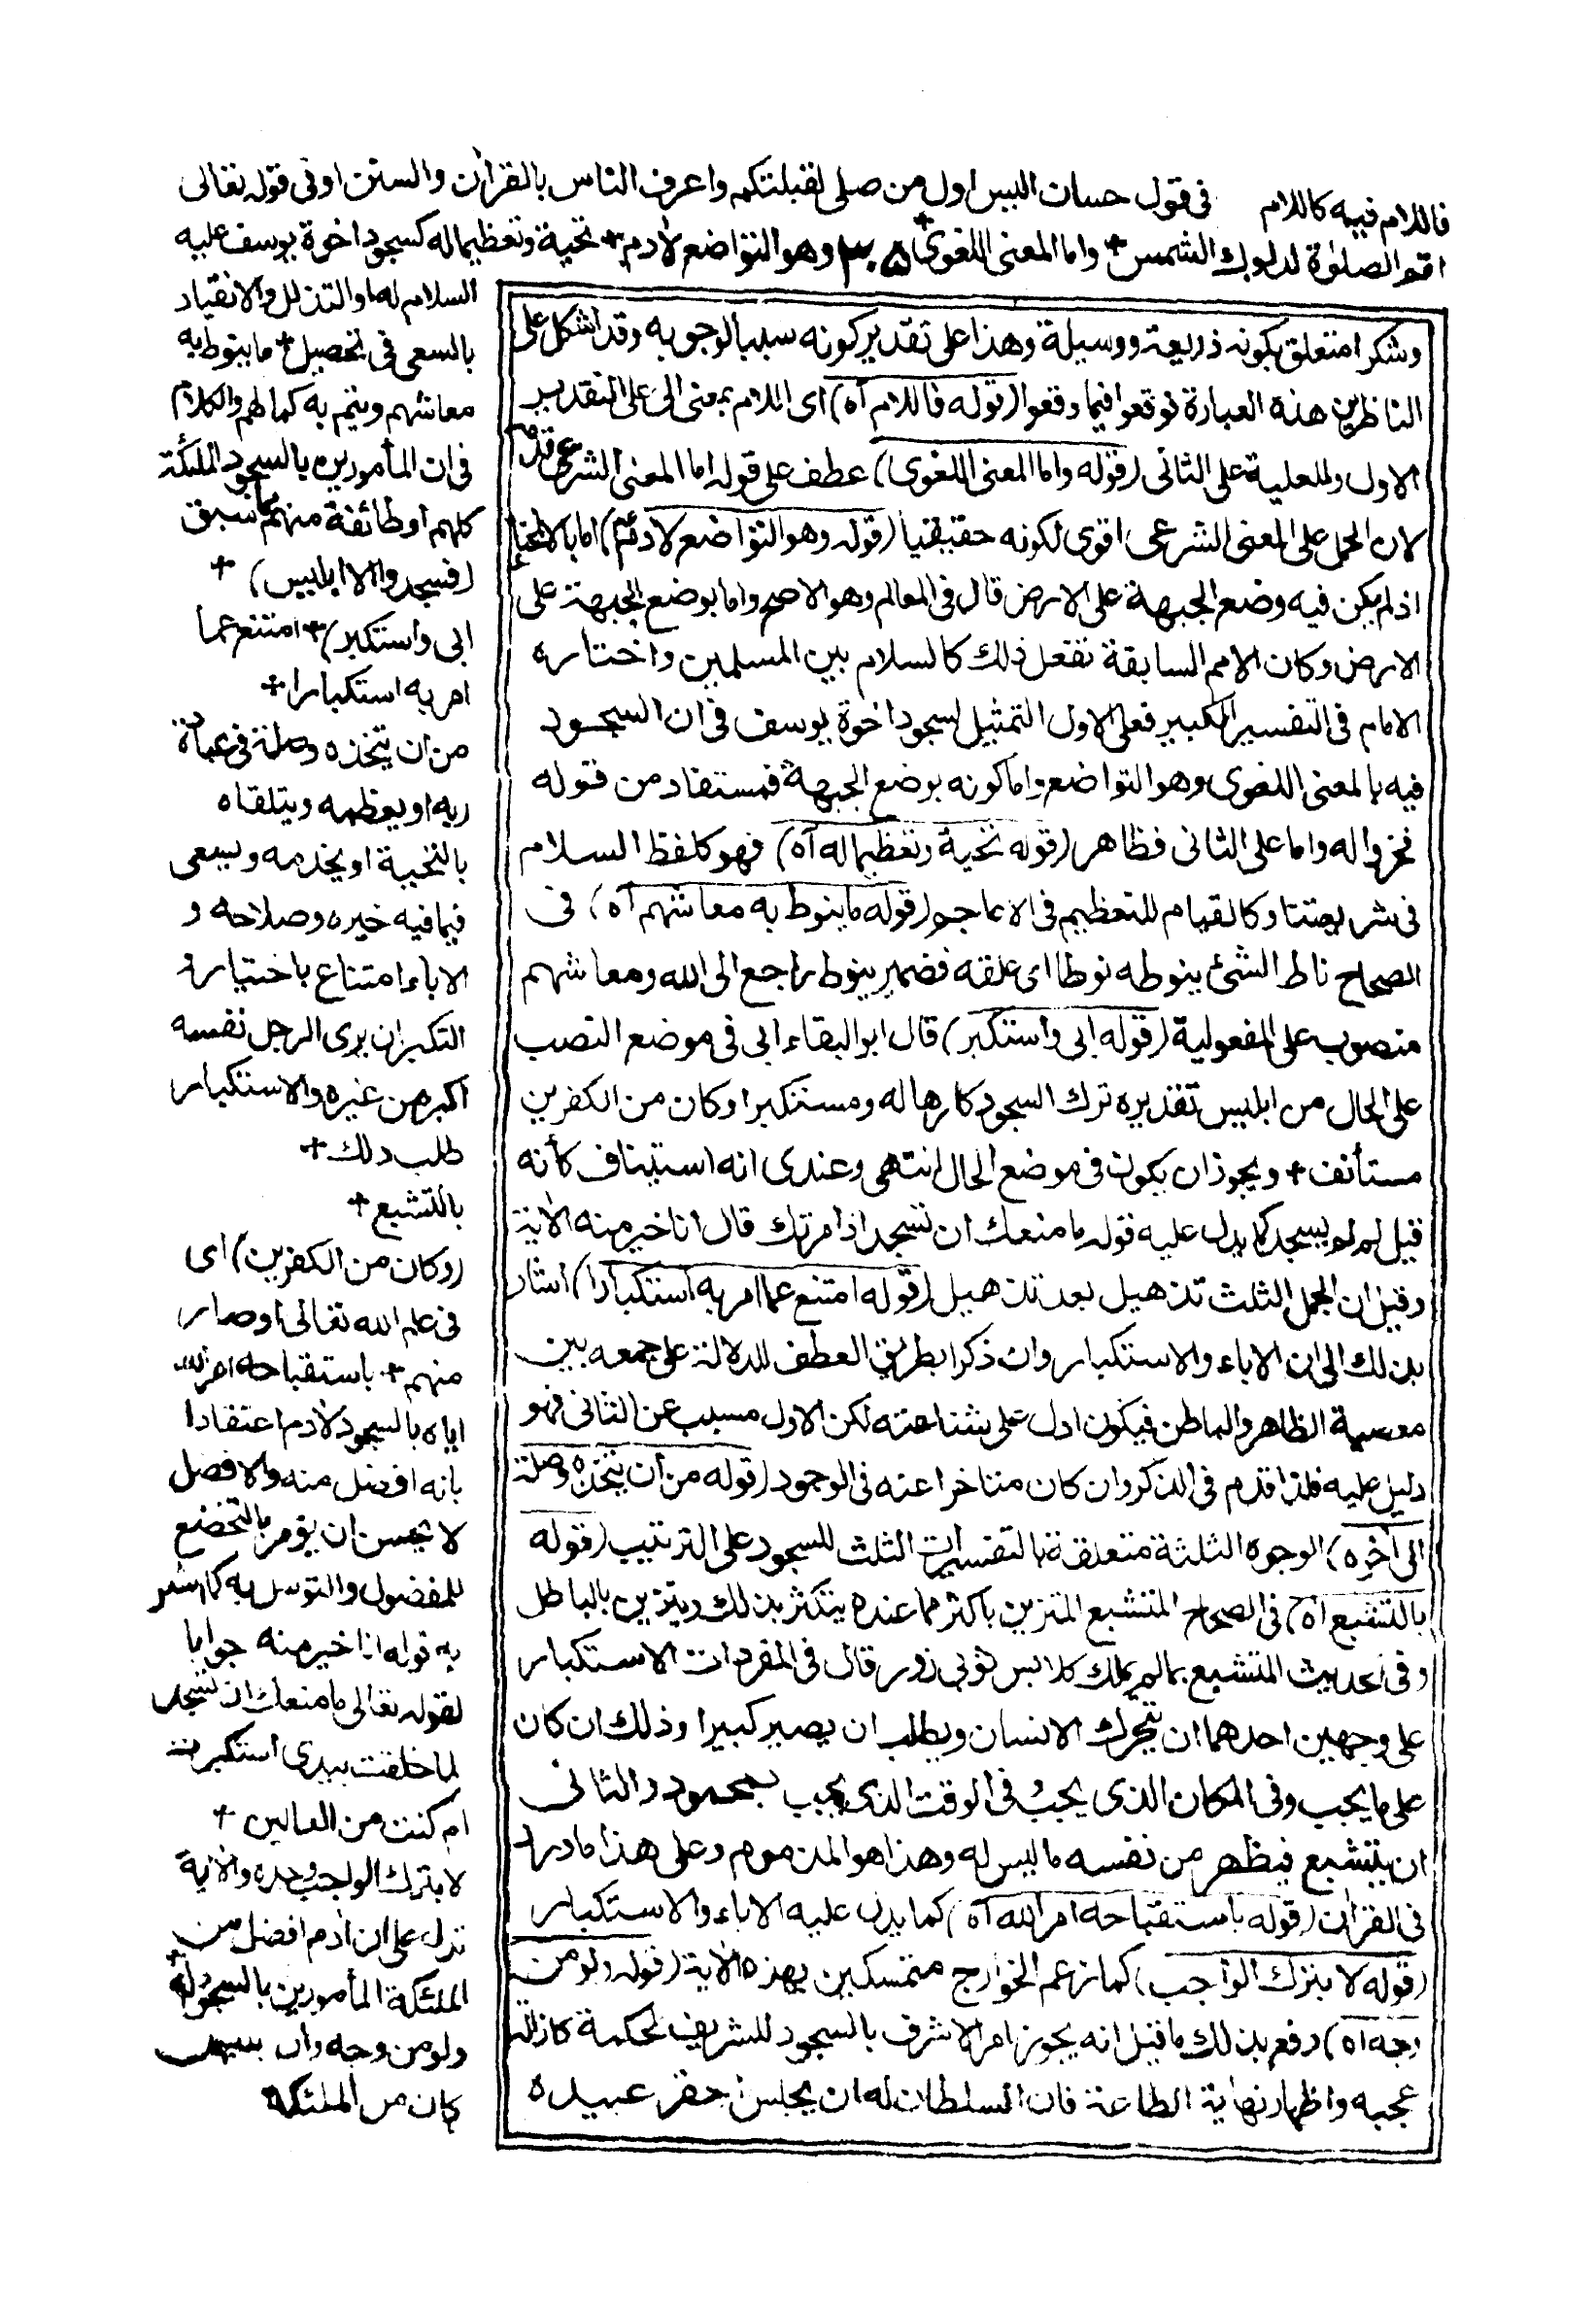 فاللام فيه كاللام في قول حسان اليس اول من صلى لقبلتكم واعرف الناس بالقرأن والسنن اوفى قوله تعالى
اقم الصلوة لدلوك الشمس + واما المعنى اللغوى + ٣٠٥ وهو التواضع لأدم + تحية وتعظيما له كسجود اخوة يوسف عليه
السلام له او التذلل والانقياد
بالسعى فى تحصيل + ما ينوط به
معاشهم ويتم به كمالهم والكلام
فى ان المأمورين بالسجود الملئكة
كلهم او طائفة منهم ما سبق
(فسجدوا الا ابليس) +
ابى واستكبر) + امتنع عما
امر به استكبارا +
من ان يتخذه وصلة فى عبادة
ربه او يعظمه ويتلقاه
بالتحية او يخدمه ويسعى
فيما فيه خيره وصلاحه و
الاباء امتناع باختياره
التكبر ان يرى الرجل نفسه
اكبر من غيره والاستكبار
طلب ذلك +
بالتشبع +
(وكان من الكفرين) اى
فى علم الله تعالى او صار
منهم + باستقباحه امر الله
اياه بالسجود لأدم اعتقادا
بانه افضل منه والافضل
لا يحسن ان يؤمر بالتخضع
للمفضول والتوسل به كما اشعر
به قوله انا خير منه جوابا
لقوله تعالى ما منعك ان تسجد
لما خلقت بيدى استكبرت
ام كنت من العالين +
لا بترك الواجب وحده والأية
تدل على ان أدم افضل من
الملئكة المأمورين بالسجود له +
ولو من وجه وان ابليس
كان من الملئكة
وشكرا متعلق بكونه ذريعة ووسيلة وهذا على تقدير كونه سببا لوجوبه وقد اشكل على
الناظرين هذه العبارة فوقعوا فيما وقعوا (قوله فاللام آه) اى اللام بمعنى الى على التقدير
الاول وللعلية على الثانى (قوله واما المعنى اللغوى) عطف على قوله اما المعنى الشرعى قدمه
لان الحمل على المعنى الشرعى اقوى لكونه حقيقيا (قوله وهو التواضع لأدم) اما بالانحناء
اذ لم يكن فيه وضع الجبهة على الارض قال فى المعالم وهو الاصح واما بوضع الجبهة على
الارض وكان الامم السابقة تفعل ذلك كالسلام بين المسلمين واختاره
الامام فى التفسير الكبير فعلى الاول التمثيل لسجود اخوة يوسف فى ان السجود
فيه بالمعنى اللغوى وهو التواضع واما كونه بوضع الجبهة فمستفاد من قوله
فخروا له واما على الثانى فظاهر (قوله تحية وتعظيما له آه) فهو كلفظ السلام
فى شريعتنا وكالقيام للتعظيم فى الاعاجم (قوله ما ينوط به معاشهم آه) فى
الصحاح ناط الشئ ينوطه نوطا اى علقه فضمير ينوط راجع الى الله ومعاشهم
منصوب على المفعولية (قوله ابى واستكبر) قال ابو البقاء ابى فى موضع النصب
على الحال من ابليس تقديره ترك السجود كارها له ومستكبرا وكان من الكفرين
مستأنف + ويجوز ان يكون فى موضع الحال انتهى وعندى انه استيناف كأنه
قيل لم لم يسجد كما يدل عليه قوله ما منعك ان تسجد اذ امرتك قال انا خير منه الأية
وقيل ان الجمل الثلث تذهيل بعد تذهيل (قوله امتنع عما امر به استكبارا) اشار
بذلك الى ان الاباء والاستكبار وان ذكرا بطريق العطف للدلالة على جمعه بين
معصية الظاهر والباطن فيكون ادل على شناعته لكن الاول مسبب عن الثانى فهو
دليل عليه فلذا قدم فى الذكر وان كان متاخرا عنه فى الوجود (قوله من ان يتخذه وصلة
الى أخره) الوجوه الثلثة متعلقة بالتفسيرات الثلث للسجود على الترتيب (قوله
بالتشبع آه) فى الصحاح المتشبع المتزين باكثر مما عنده يتكثر بذلك ويتزين بالباطل
وفى الحديث المتشبع بما لم يملك كلابس ثوبى زور قال فى المفردات الاستكبار
على وجهين احدهما ان يتحرك الانسان ويطلب ان يصير كبيرا وذلك ان كان
على ما يجب وفى المكان الذى يجب وفى الوقت الذى يجب بمحمود والثانى
ان يتشبع فيظهر من نفسه ما ليس له وهذا هو المذموم وعلى هذا ما ورد
فى القرأن (قوله باستقباحه امر الله آه) كما يدل عليه الاباء والاستكبار
(قوله لا بترك الواجب) كما زعم الخوارج متمسكين بهذه الأية (قوله ولو من
وجه آه) دفع بذلك ما قيل انه يجوز امر الاشرف بالسجود للشريف لحكمة كازالة
عجبه واظهار نهاية الطاعة فان السلطان له ان يجلس احقر عبيده